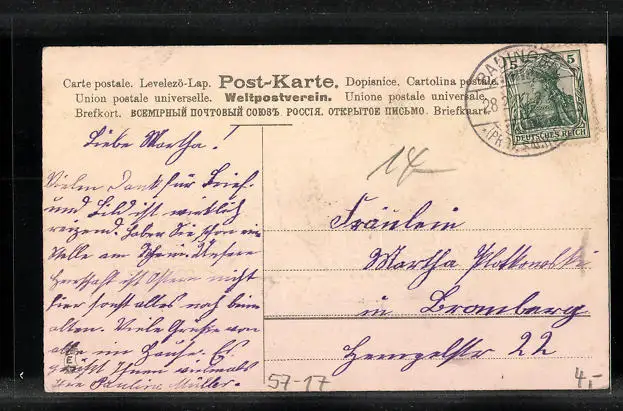 Carte postale. Levelezö-Lap. Post-Karte. Dopisnice. Cartolina postale.
Union postale universelle. Weltpostverein. Unione postale universale.
Brefkort. ВСЕМIРНЫЙ ПОЧТОВЫЙ СОЮЗЪ. РОССIЯ. ОТКРЫТОЕ ПИСЬМО. Briefkaart.
5 5
DEUTSCHES REICH
14
Liebe Martha!
Vielen Dank für Brief
und Bild ist wirklich
reizend. Haben Sie schon ein
Stelle am Rhein. Unsere
Herrschaft ist Ostern nicht
hier sonst alles noch beim
alten. Viele Grüße von
alle im Hause. Es
grüßt Ihnen vielmals
Pauline Müller.
Fräulein
Martha Plotkowski
in Bromberg
Hempelstr 22
57-17
4,-